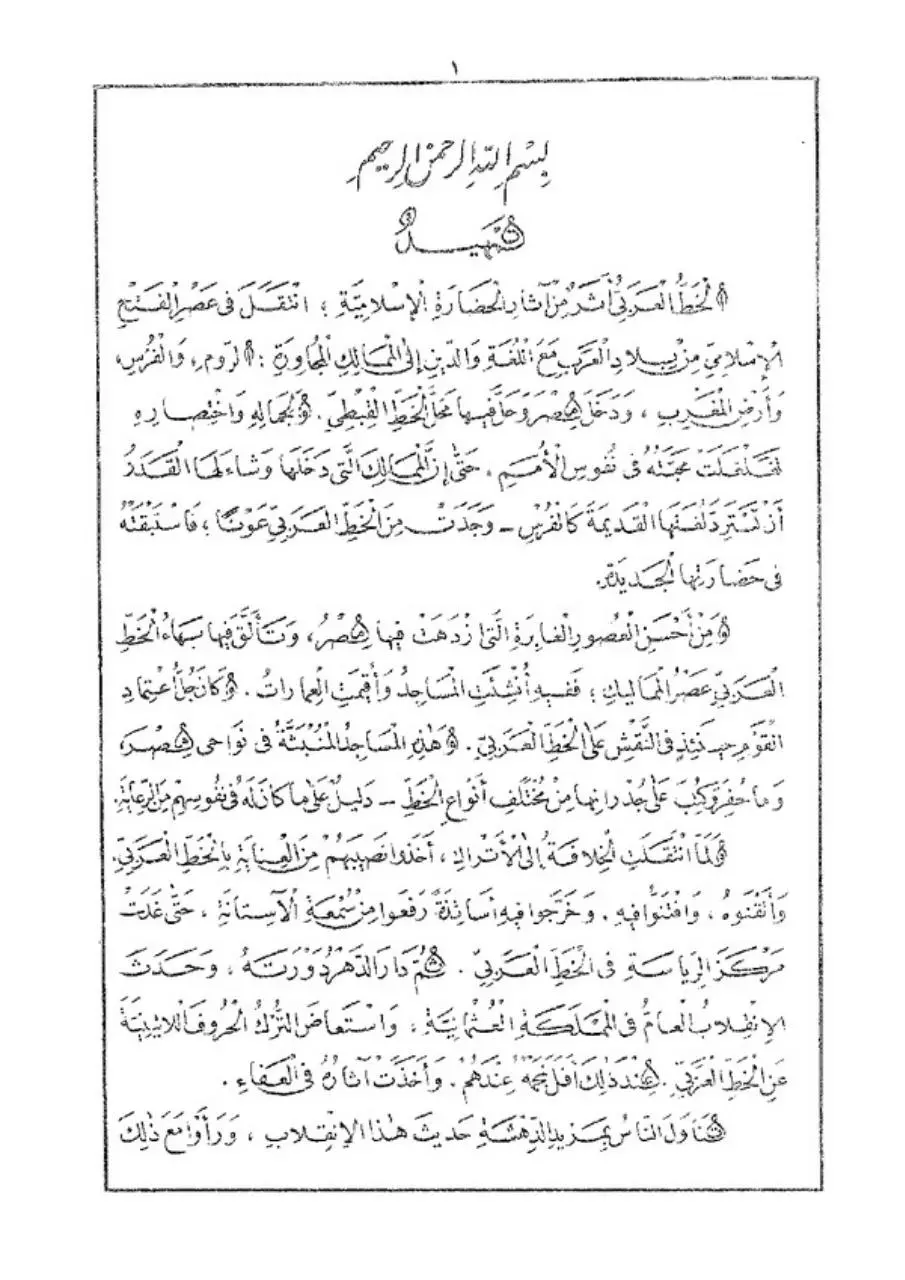 ١
بسم الله الرحمن الرحيم
تمهيد
الخَطُّ العَرَبيُّ أَثَرٌ مِنْ آثارِ الحَضارَةِ الإسْلامِيَّةِ ؛ انْتَقَلَ فى عَصْرِ الفَتْحِ
الإسْلامِيّ مِنْ بِلادِ العَرَبِ مَعَ اللُّغَةِ وَالدِّينِ إلى المَمالِكِ المُجاوِرَةِ : الرُّومِ، وَالفُرْسِ،
وَأَرْضِ المَغْرِبِ ، وَدَخَلَ مِصْرَ وَحَلَّ فيها مَحَلَّ الخَطِّ القِبْطِيِّ. وَلِجَمالِهِ وَاخْتِصارِهِ
تَغَلْغَلَتْ مَحَبَّتُهُ فى نُفُوسِ الأُمَمِ . حَتَّى إِنَّ المَمالِكَ الَّتى دَخَلَها وَشاءَ لَها القَدَرُ
أَنْ تَسْتَرِدَّ لُغَتَها القَديمَةَ كَالفُرْسِ - وَجَدَتْ مِنَ الخَطِّ العَرَبيِّ عَوْنًا ؛ فَاسْتَبْقَتْهُ
فى حَضارَتِها الجَديدَةِ.
وَمِنْ أَحْسَنِ العُصورِ الغابِرَةِ الَّتى ازْدَهَتْ فيها مِصْرُ، وَتَأَلَّقَ فيها بَهاءُ الخَطِّ
العَرَبيِّ عَصْرُ المَماليكِ ؛ فَفيهِ أُنْشِئَتِ المَساجِدُ وَأُقيمَتِ العِماراتُ . وَكانَ جُلُّ اعْتِمادِ
القَوْمِ حينَئِذٍ فى النَّقْشِ عَلى الخَطِّ العَرَبيِّ. وَهٰذِهِ المَساجِدُ المُنْبَثَّةُ فى نَواحى مِصْرَ،
وَما حُفِرَ وَكُتِبَ عَلى جُدْرانِها مِنْ مُخْتَلِفِ أَنْواعِ الخَطِّ - دَليلٌ عَلى ما كانَ لَهُ فى نُفوسِهِمْ مِنَ الرِّعايَةِ.
وَلَمَّا انْتَقَلَتِ الخِلافَةُ إلى الأَتْراكِ ، أَخَذوا نَصيبَهُمْ مِنَ العِنايَةِ بِالخَطِّ العَرَبيِّ.
وَأَتْقَنوهُ ، وَافْتَنُّوا فيهِ . وَخَرَّجوا فيهِ أَساتِذَةً رَفَعوا مِنْ سُمْعَةِ الآسِتانَةِ ، حَتَّى غَدَتْ
مَرْكَزَ الرِّياسَةِ فى الخَطِّ العَرَبيِّ . ثُمَّ دارَ الدَّهْرُ دَوْرَتَهُ ، وَحَدَثَ
الإنْقِلابُ العامُّ فى المَمْلَكَةِ العُثْمانِيَّةِ ، وَاسْتَعاضَ التُّرْكُ الحُروفَ اللاتينِيَّةَ
عَنِ الخَطِّ العَرَبيِّ . عِنْدَ ذٰلِكَ أَفَلَ نَجْمُهُ عِنْدَهُمْ . وَأَخَذَتْ آثارُهُ فى العَفاءِ .
تَناوَلَ النَّاسُ بِمَزيدِ الدِّهْشَةِ حَديثَ هٰذا الإنْقِلابِ ، وَرَأَوْا مَعَ ذٰلِكَ